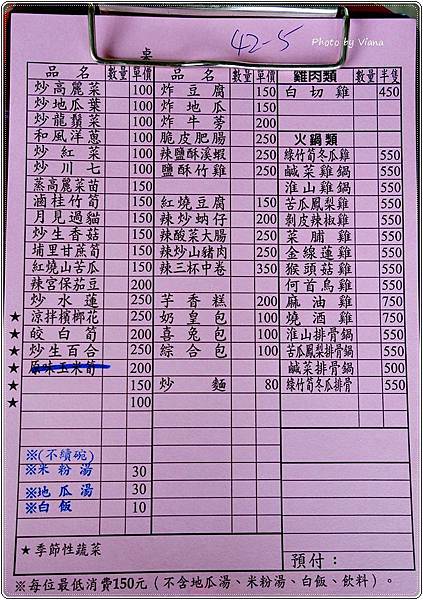 42-5
Photo by Viana
桌
品名 數量 單價
炒高麗菜 100
炒地瓜葉 100
炒龍鬚菜 100
和風洋蔥 100
炒紅菜 100
炒川七 100
蒸高麗菜苗 150
滷桂竹筍 150
月見過貓 150
炒生香菇 150
埔里甘蔗筍 150
紅燒山苦瓜 150
辣宮保茄豆 200
炒水蓮 250
★ 涼拌檳榔花 250
★ 皎白筍 200
★ 炒生百合 250
★ 原味玉米筍 200
★ 150
★ 100
※(不續碗)
※米粉湯 30
※地瓜湯 30
※白飯 10
★季節性蔬菜
品名 數量 單價
炸豆腐 150
炸地瓜 150
炸牛蒡 200
脆皮肥腸 250
辣鹽酥溪蝦 250
鹽酥竹雞 250
紅燒豆腐 150
辣炒蚋仔 200
辣酸菜大腸 250
辣炒山豬肉 250
辣三杯中卷 350
芋香糕 200
奶皇包 100
喜兔包 100
綜合包 100
炒麵 80
雞肉類 數量 半隻
白切雞 450
火鍋類
綠竹筍冬瓜雞 550
鹹菜雞鍋 550
淮山雞鍋 550
苦瓜鳳梨雞 550
剝皮辣椒雞 550
菜脯雞 550
金線蓮雞 550
猴頭菇雞 550
何首烏雞 550
麻油雞 750
燒酒雞 750
淮山排骨鍋 550
苦瓜鳳梨排骨鍋 550
鹹菜排骨鍋 500
綠竹筍冬瓜排骨 550
預付：
※每位最低消費150元（不含地瓜湯、米粉湯、白飯、飲料）。